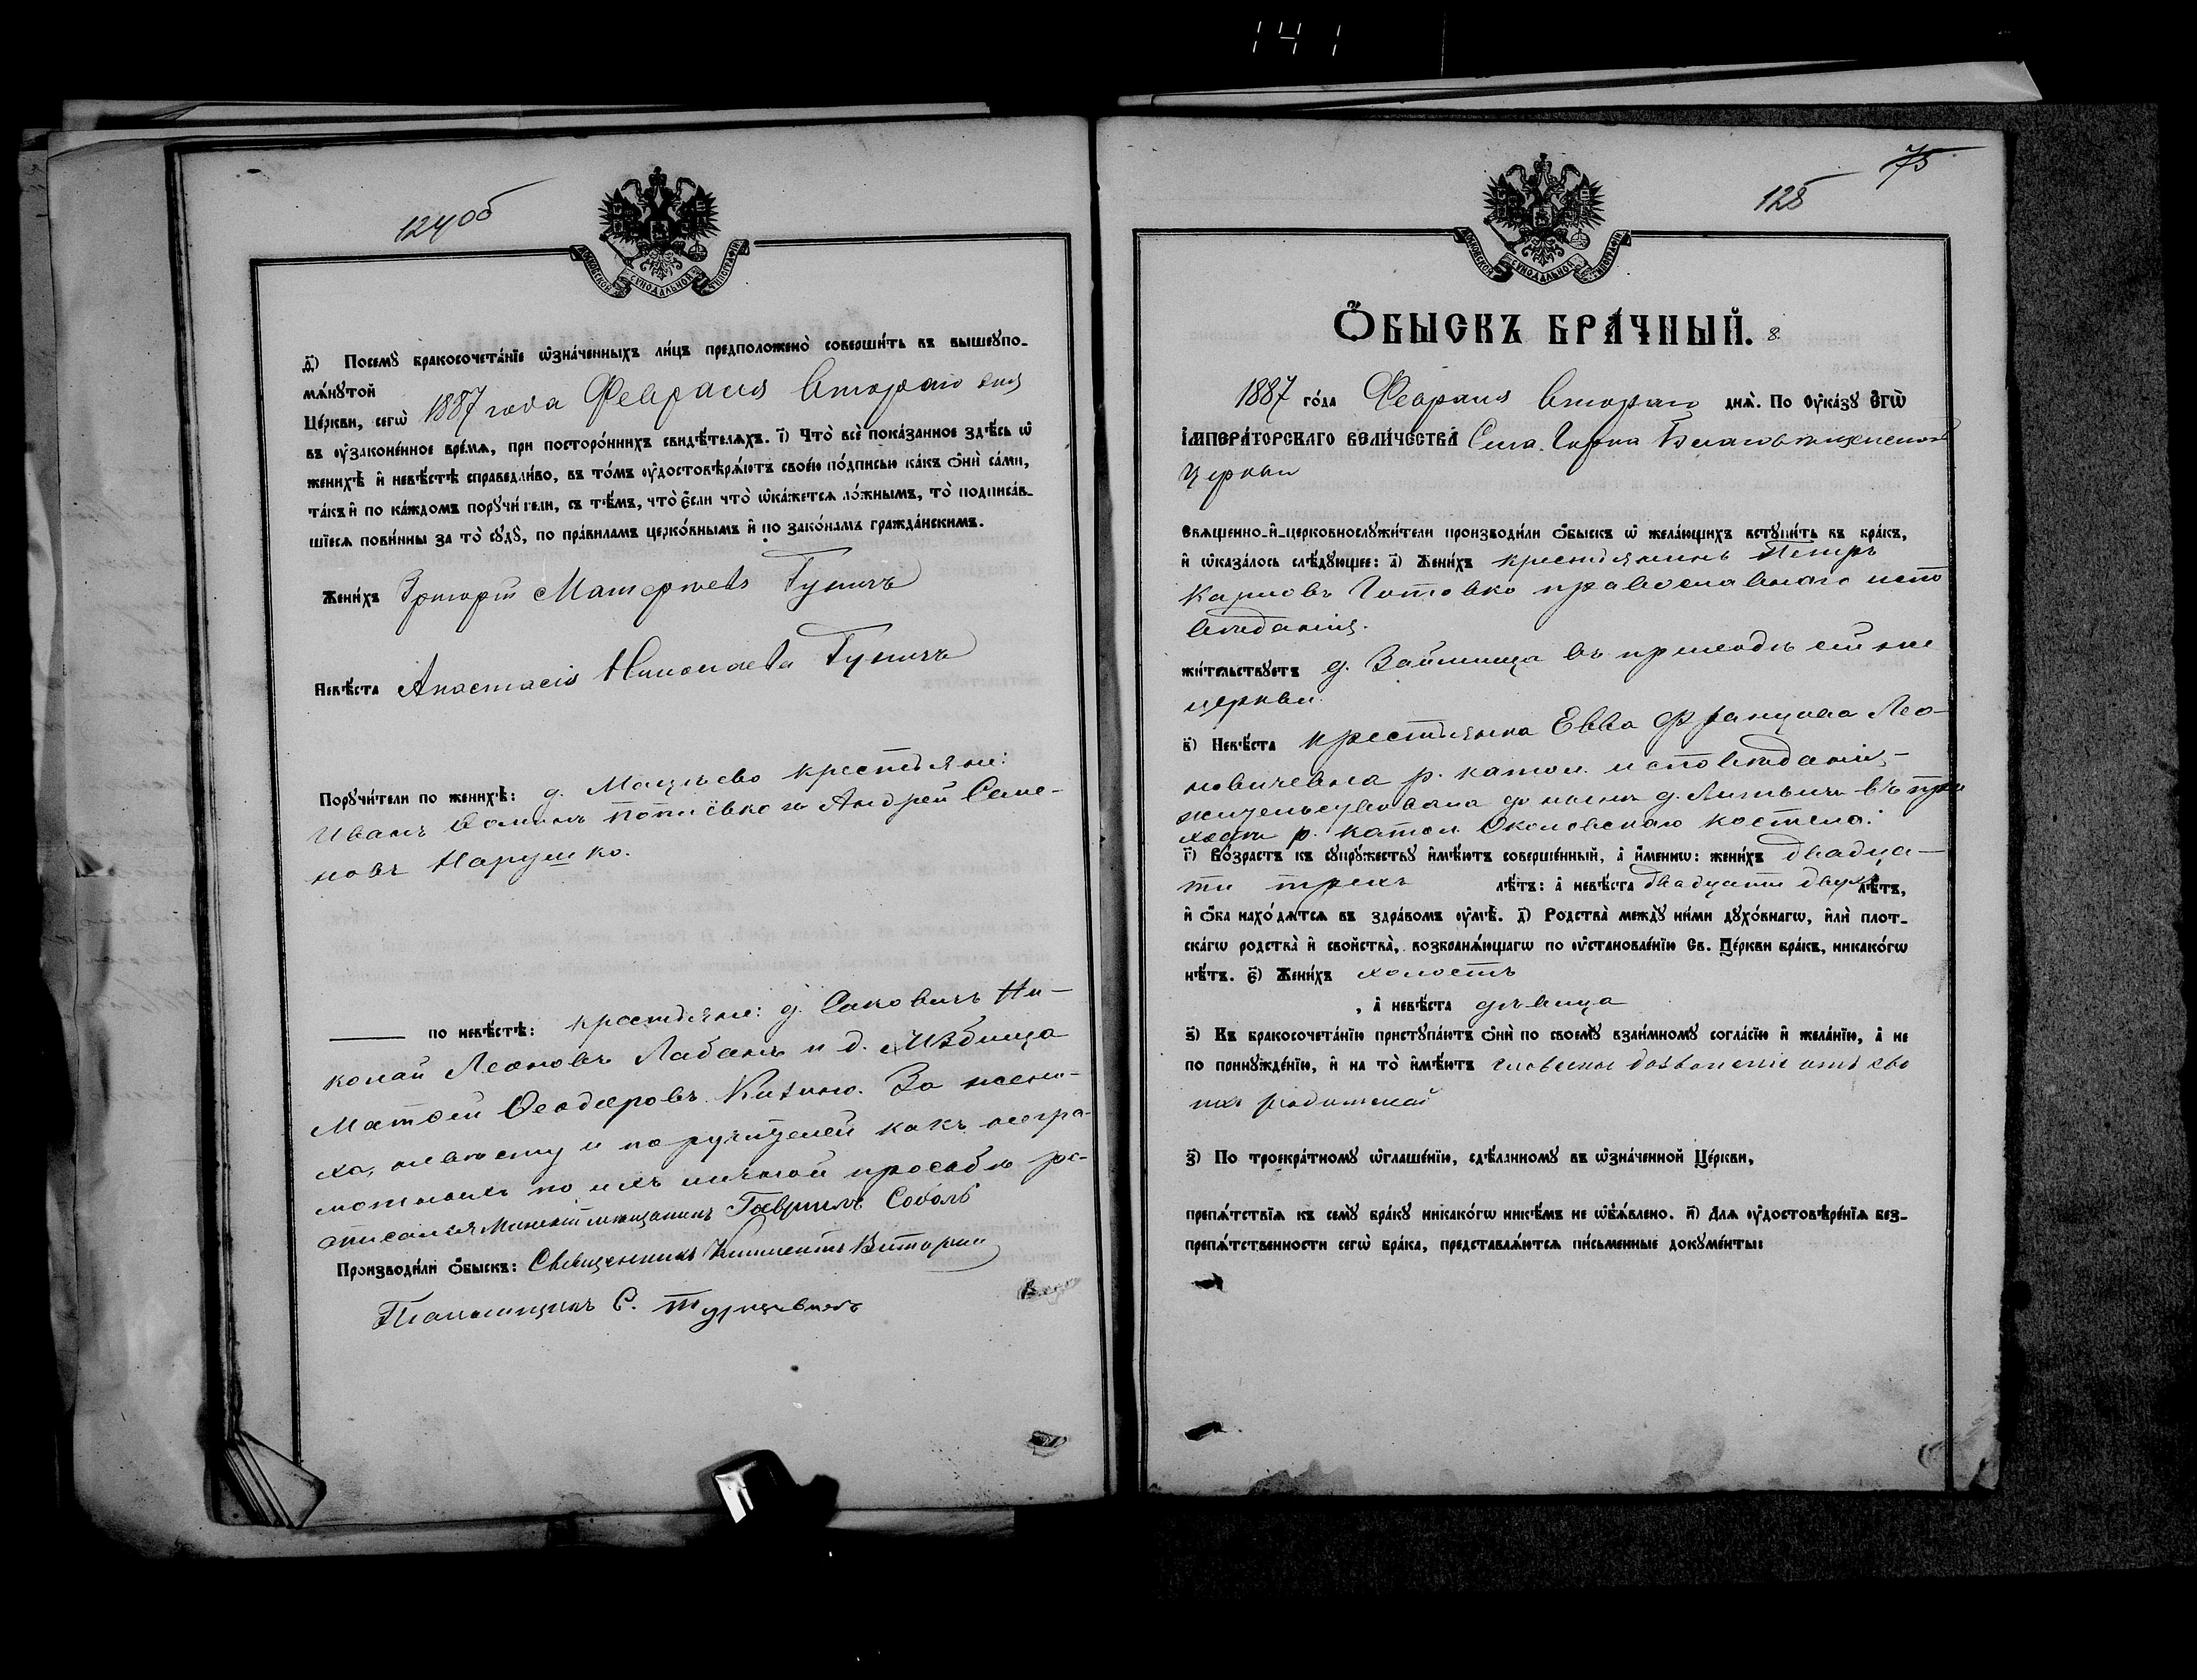 141
124об
МОСКОВСКОЙ СѴНОДАЛЬНОЙ ТИПОГРАФІИ
д҃і) Посемꙋ̀ бракосочета́нїе ѡ҆зна́ченныхъ ли́цъ предположено̀ соверши́ть въ вышеꙋпо-
мѧ́нꙋтой
Це́ркви, сегѡ̀ 1887 года Февраля втораго дня
въ ᲂу҆зако́ненное вре́мѧ, при посторо́ннихъ свидѣ́телѧхъ. і҃) Что̀ всѐ пока́занное здѣ́сь ѡ҆
женихѣ̀ и҆ невѣ́стѣ справедли́во, въ то́мъ ᲂу҆достовѣрѧ́ютъ свое́ю по́дписью ка́къ ѻ҆нѝ са́ми,
та́къ и҆ по ка́ждомъ порꙋчи́тели, съ тѣ́мъ, что̀ є҆́сли что̀ ѡ҆ка́жетсѧ ло́жнымъ, то̀ подписа́в-
шїесѧ пови́нны за то̀ сꙋдꙋ̀, по пра́виламъ церко́внымъ и҆ по зако́намъ гражда́нскимъ.
Жени́хъ Григорій Матвеевъ Гуничъ
Невѣ́ста Анастасія Николаева Гуничъ
Порꙋчи́тели по женихѣ̀: д. крестьяне:
Иванъ Андрей Семе-
новъ Нарушко.
по невѣ́стѣ: крестьяне: д. Саковичъ Ни-
колай Леоновъ Лабань и д.
Матѳей Ѳеодоровъ За жени-
ха, невѣсту и поручителей какъ негра-
мотныхъ по ихъ личной просьбѣ ро-
списался Минскій мѣщанинъ Гавріилъ Соболь
Производи́ли ѻ҆́быскъ: Священникъ Климентъ
Псаломщикъ С. Турцевичъ
75
125
МОСКОВСКОЙ СѴНОДАЛЬНОЙ ТИПОГРАФІИ
Ѻ҆́БЫСКЪ БРА́ЧНЫЙ. 8.
1887 го́да Февраля втораго днѧ̀. По ᲂу҆ка́зꙋ Є҆гѡ̀
І҆МПЕРА́ТОРСКАГО ВЕЛИ́ЧЕСТВА Села Благовѣщенской
церкви
Свѧще́нно-и҆-церковнослꙋжи́тели производи́ли ѻ҆́быскъ ѡ҆ жела́ющихъ встꙋпи́ть въ бра́къ,
и҆ ѡ҆каза́лось слѣ́дꙋющее: а҃) Жени́хъ крестьянинъ Петръ
Карловъ Готовко православнаго испо
вѣданія.
жи́тельствꙋетъ д. Займища въ приходѣ сей же
церкви.
в҃) Невѣ́ста крестьянка Евва Францова Лео-
новичевна р. катол. исповѣданія,
жительствовала до нынѣ д. въ при
ходѣ р. катол. Околовскаго костела.
г҃) Во́зрастъ къ сꙋпрꙋ́жествꙋ и҆мѣ́ютъ соверше́нный, а҆ и҆́менно: жени́хъ двадца-
ти трехъ лѣ́тъ: а҆ невѣ́ста двадцати двухъ лѣ́тъ,
и҆ ѻ҆́ба нахо́дѧтсѧ въ здра́вомъ ᲂу҆мѣ̀. д҃) Родства̀ междꙋ̀ ни́ми дꙋхо́внагѡ, и҆лѝ плот-
ска́гѡ родства̀ и҆ свойства̀, возбранѧ́ющагѡ по ᲂу҆становле́нїю Св. Це́ркви бра́къ, никако́гѡ
нѣ́тъ. є҃) Жени́хъ холостъ
, а҆ невѣ́ста дѣвица
ѕ҃) Къ бракосочета́нїю пристꙋпа́ютъ ѻ҆нѝ по своемꙋ̀ взаи́мномꙋ согла́сїю и҆ жела́нїю, а҆ не
по принꙋжде́нїю, и҆ на то̀ и҆мѣ́ютъ словесное дозволеніе отъ сво
ихъ родителей
з҃) По троекра́тномꙋ ѡ҆глаше́нїи, сдѣ́ланномꙋ въ ѡ҆зна́ченной Це́ркви,
препѧ́тствїѧ къ семꙋ̀ бра́кꙋ никако́гѡ никѣ́мъ не ѡ҆б̾ѧ́влено. и҃) Длѧ ᲂу҆достовѣре́нїѧ без-
препѧ́тственности сегѡ̀ бра́ка, представлѧ́ютсѧ пи́сьменные докꙋме́нты: